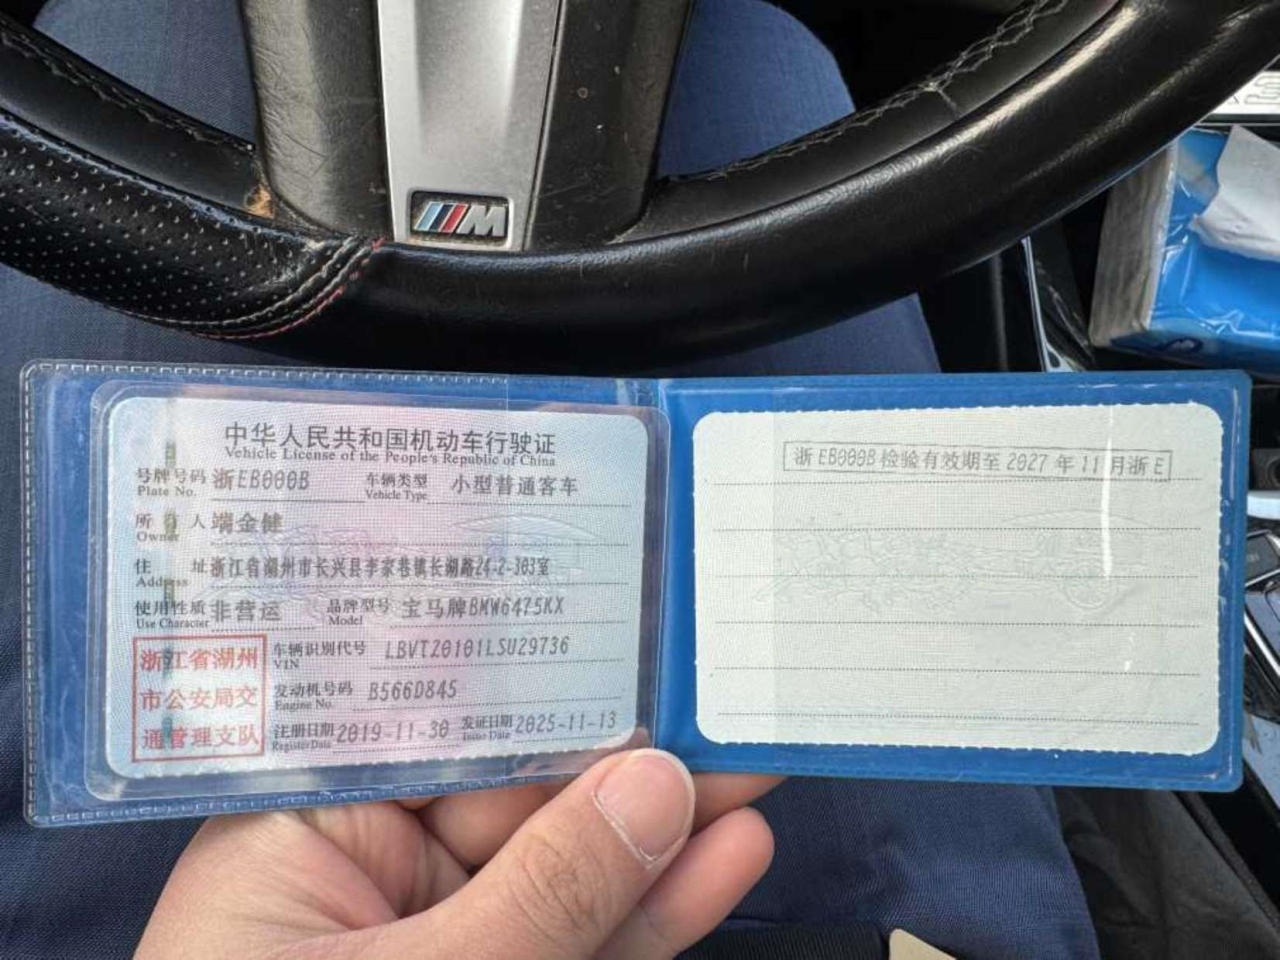 M
中华人民共和国机动车行驶证
Vehicle License of the People's Republic of China
号牌号码 浙EB000B 车辆类型 小型普通客车
Plate No. Vehicle Type
所有人 端金健
Owner
住址 浙江省湖州市长兴县李家巷镇长湖路24-2-303室
Address
使用性质 非营运 品牌型号 宝马牌BMW6475KX
Use Character Model
浙江省湖州
市公安局交
通管理支队
车辆识别代号 LBVTZ0101LSU29736
VIN
发动机号码 B566D845
Engine No.
注册日期 2019-11-30 发证日期 2025-11-13
Register Date Issue Date
浙EB000B检验有效期至2027年11月浙E